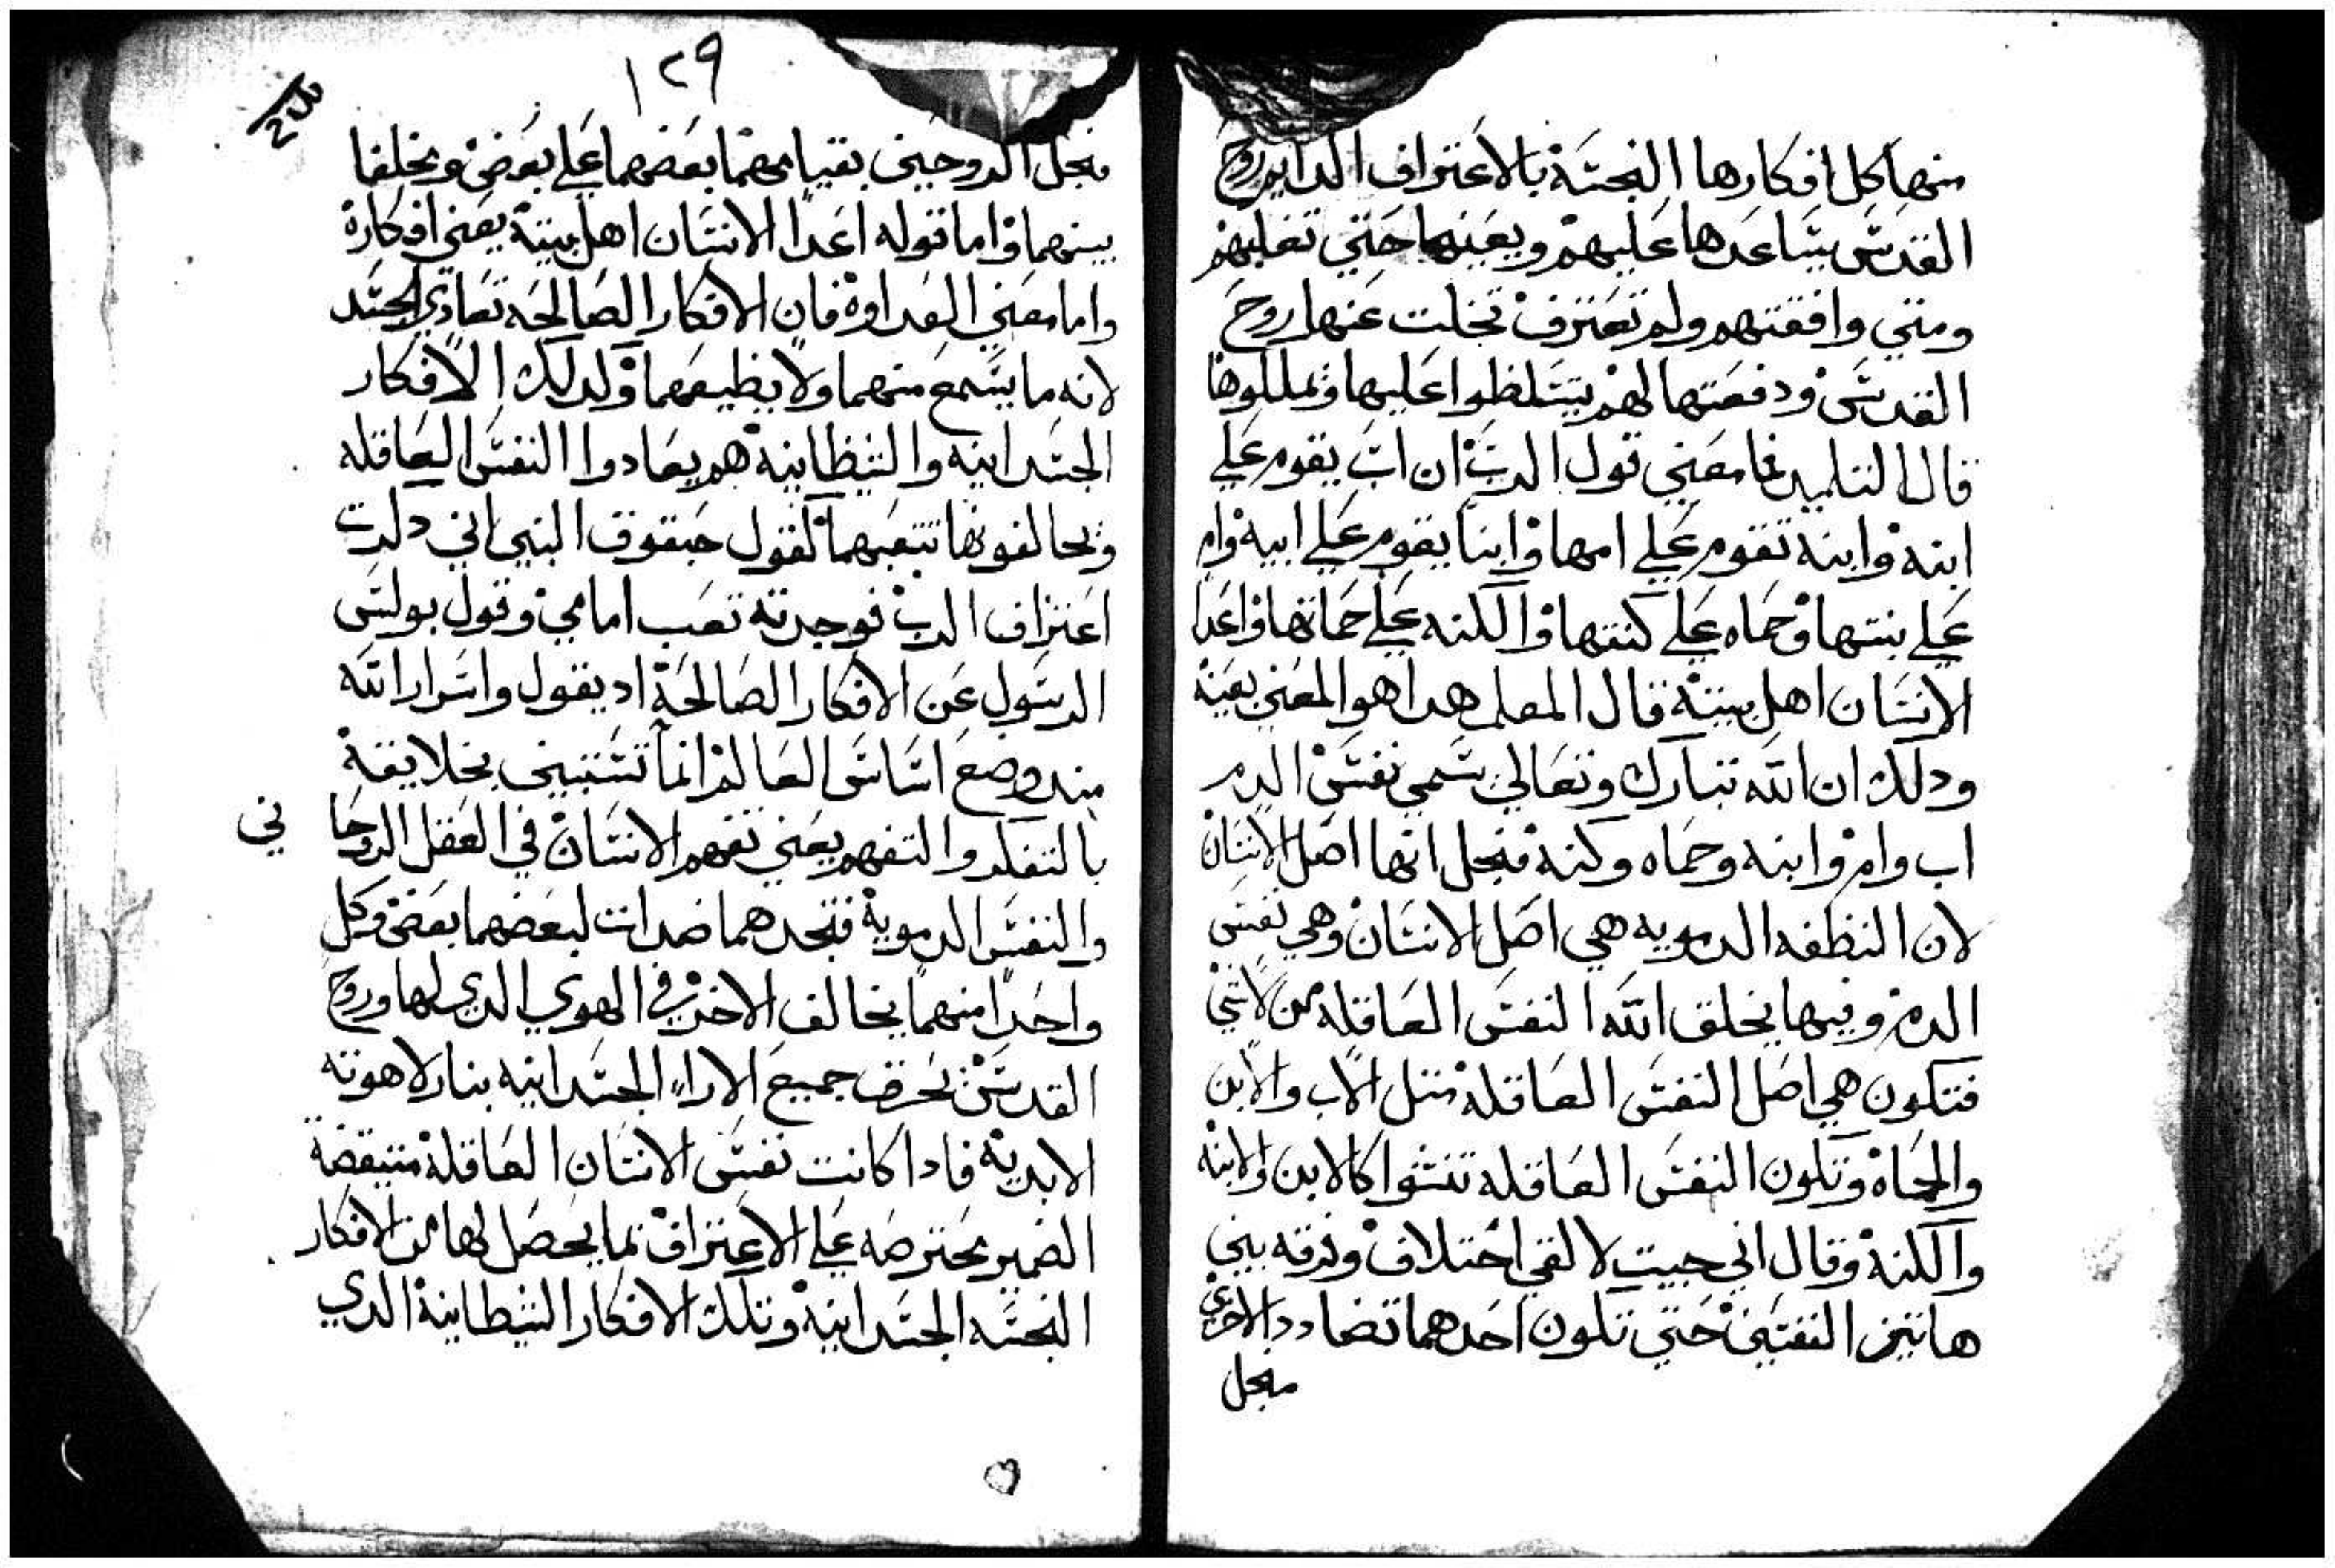 منها كل افكارها النجسة بالاعتراف الدايم روح
القدس يساعدها عليهم ويعينها حتي تغلبهم
ومتي وافقتهم ولم تعترف تخلت عنها روح
القدس ودفعتها لهم يتسلطوا عليها ويملكوها
قال التلميد فما معني قول الرب ان اب يقوم علي
ابنه وابنه تقوم علي امها وابنا يقوم علي ابيه وام
علي بنتها وحماه علي كنتها والكنه علي حماتها واعدا
الانسان اهل بيته قال المعلم هدا هو المعني بعينه
ودلك ان الله تبارك وتعالي سمي نفس الدم
اب وام وابنه وحماه وكنه فجعل انها اصل الانسان
لان النطفه الدمويه هي اصل الانسان وهي نفس
الدم وفيها يخلق الله النفس العاقله من لاشي
فتكون هي اصل النفس العاقلة متل الاب والابن
والحماة وتكون النفس العاقله تنشوا كالابن والابنه
والكنة وقال اني جيت لالقي اختلاف وفرقه بين
هاتين النفسين حتي تكون احدهما تضادد الاخري
فجعل
١٢٩
فجعل الروحين بقيامهما بعضهما علي بعض ويخلفا
بينهما واما قوله اعدا الانسان اهل بيته يعني افكاره
واما معني العداوة فان الافكار الصالحه تعادي الجسد
لانه ما يسمع منهما ولا يطيعهما ولدلك الافكار
الجسدانيه والشيطانيه هم يعادوا النفس العاقله
ويخالفونها تتبعهما كقول حبقوق النبي اني دكرت
اعتراف الرب فوجدته تعب امامي وقول بولس
الرسول عن الافكار الصالحة اد يقول واسرار الله
مند وضع اساس العالم انما تستبين بخلايقه
بالتفكر والتفهم يعني تفهم الانسان في العقل الروحا
ني
والنفس الدموية فتجدهما ضدات لبعضهما بعض وكل
واحدا منهما يخالف الاخر في الهوي الدي لها وروح
القدس تحرق جميع الاراء الجسدانيه بنار لاهوته
الابدية فادا كانت نفس الانسان العاقلة متيقضة
الضمير محترصه علي الاعتراف بما يحصل لها من الافكار
النجسه الجسدانية وتلك الافكار الشيطانية الدي